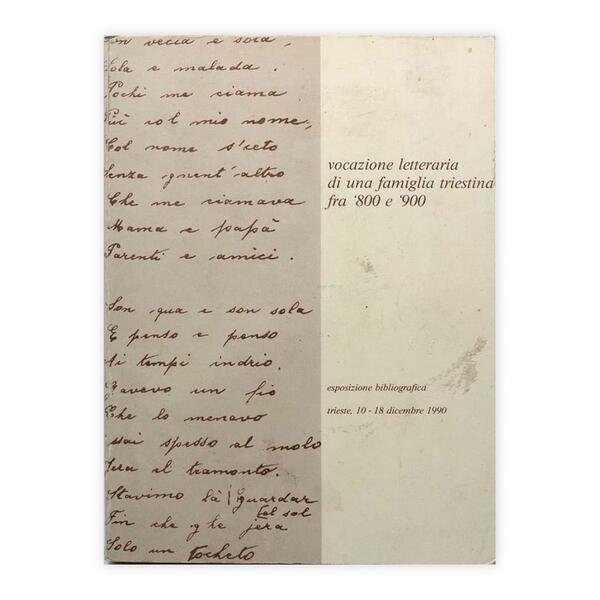 Son vecia e sola,
Sola e malada.
Pochi me ciama
Più col mio nome,
Col nome s'ceto
Senza gnent' altro
Che me ciamava
Mama e papà
Parenti e amici.
Son qua e son sola
E penso e penso
Ai tempi indrio.
Gavevo un fio
Che lo menavo
Assai spesso al molo
Jera el tramonto.
Stavimo là guardar
Fin che ghe jera
tel sol
Solo un tocheto
vocazione letteraria
di una famiglia triestina
fra '800 e '900
esposizione bibliografica
trieste, 10 - 18 dicembre 1990